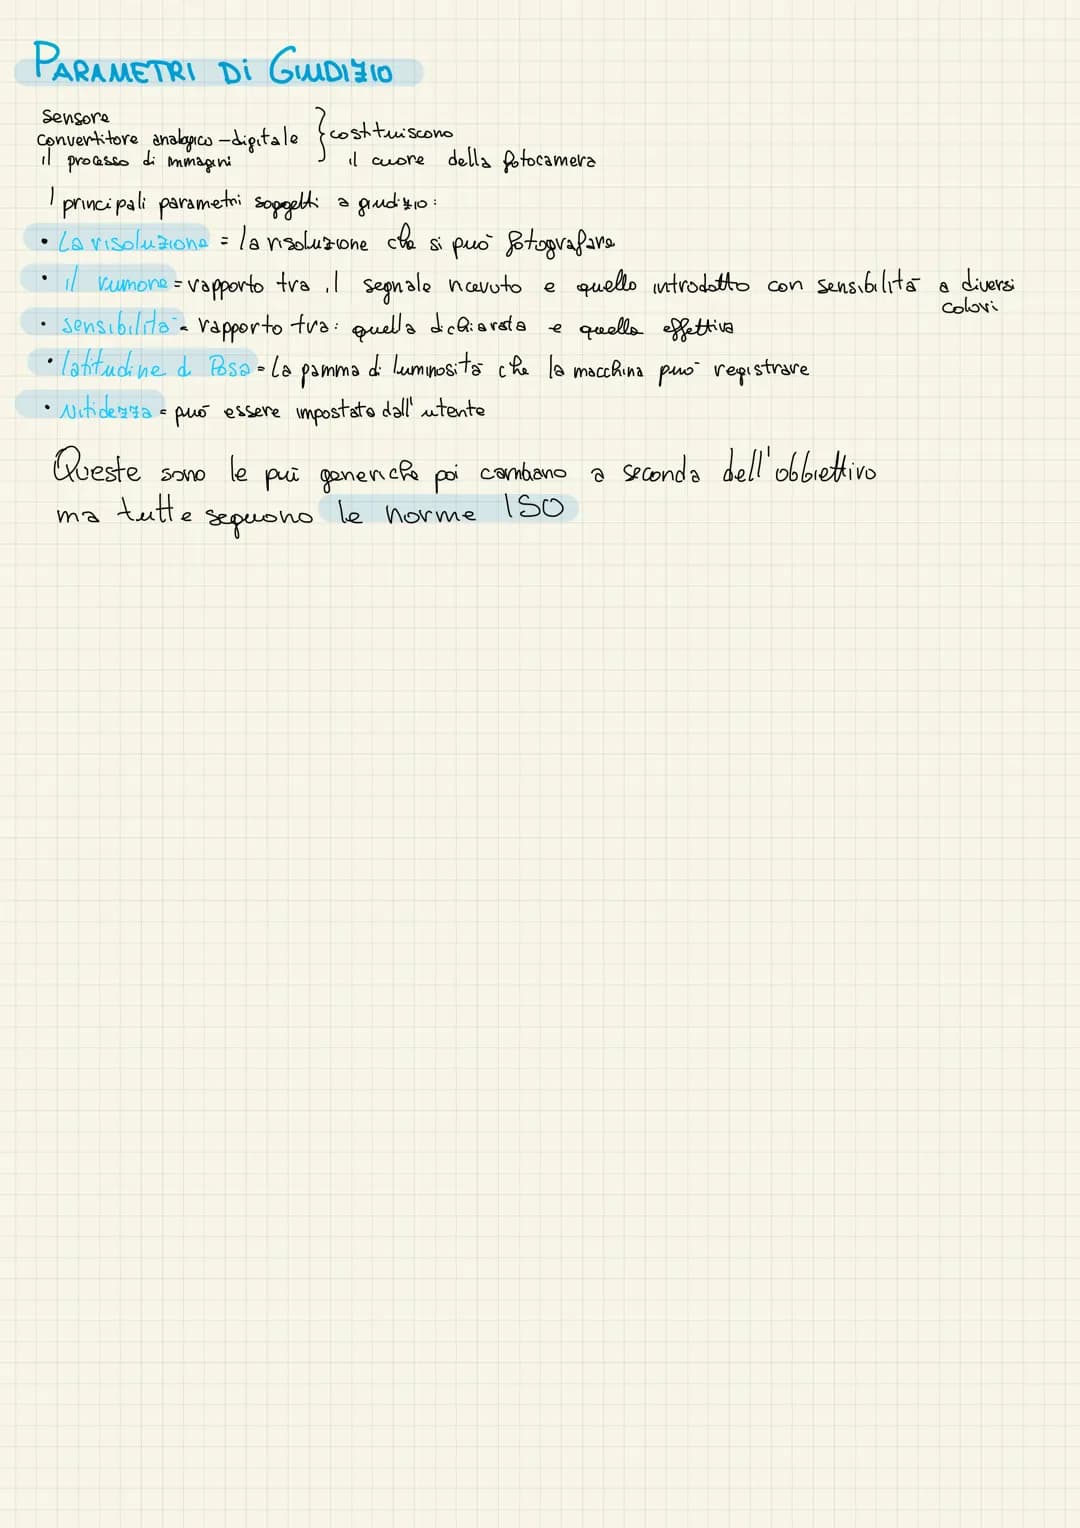 PARAMETRI Di GIUDIZIO
Sensore
Convertitore analogico-digitale } costituiscono
il processo di immagini il cuore della fotocamera
I principali parametri soggetti a giudizio:
• La risoluzione = la risoluzione che si può fotografare
• il rumore = rapporto tra il segnale ricevuto e quello introdotto con sensibilità a diversi
colori
• sensibilità = rapporto tra: quella dichiarata e quella effettiva
• latitudine di Posa = La gamma di luminosità che la macchina può registrare
• Nitidezza = può essere impostato dall'utente
Queste sono le più generiche poi cambiano a seconda dell'obbiettivo
ma tutte seguono le norme ISO